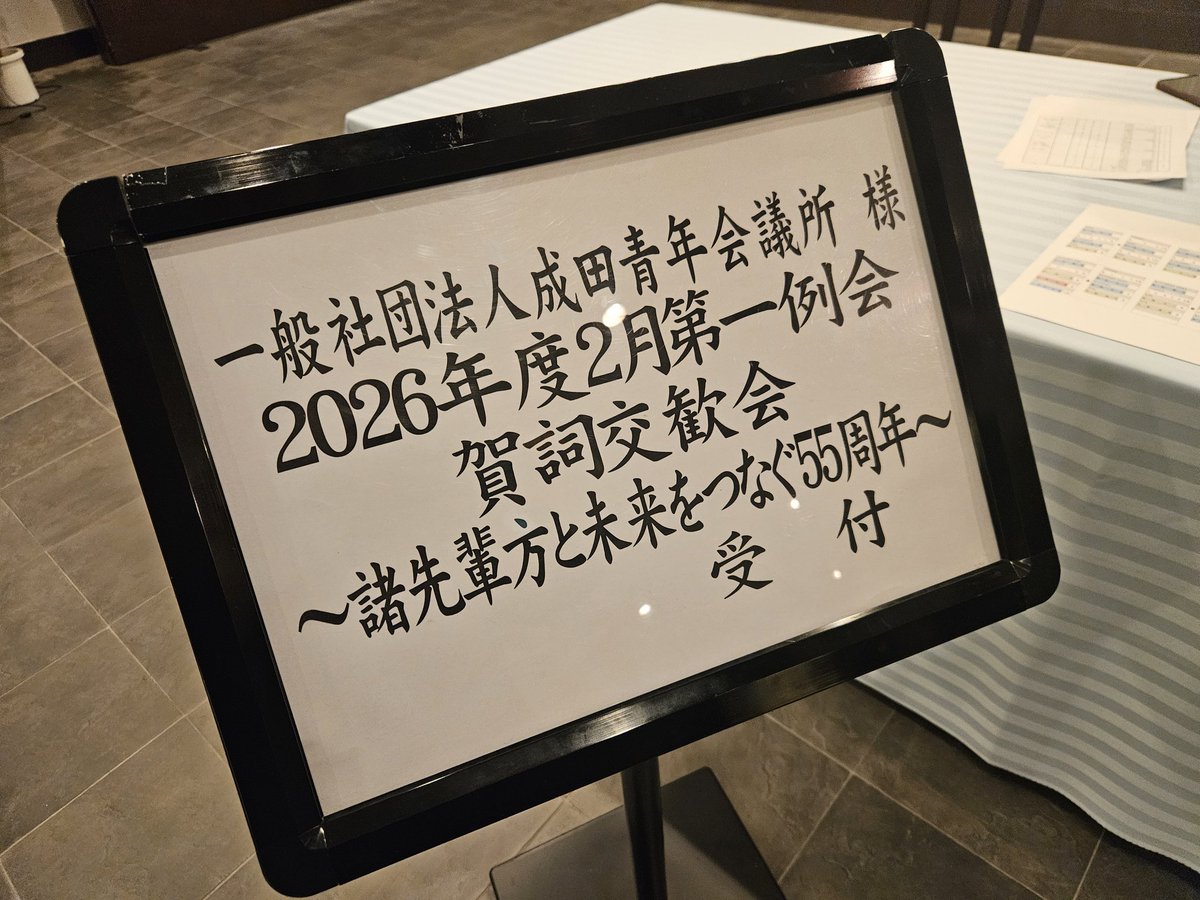 一般社団法人成田青年会議所 様
2026年度2月第一例会
賀詞交歓会
～諸先輩方と未来をつなぐ55周年～
受 付